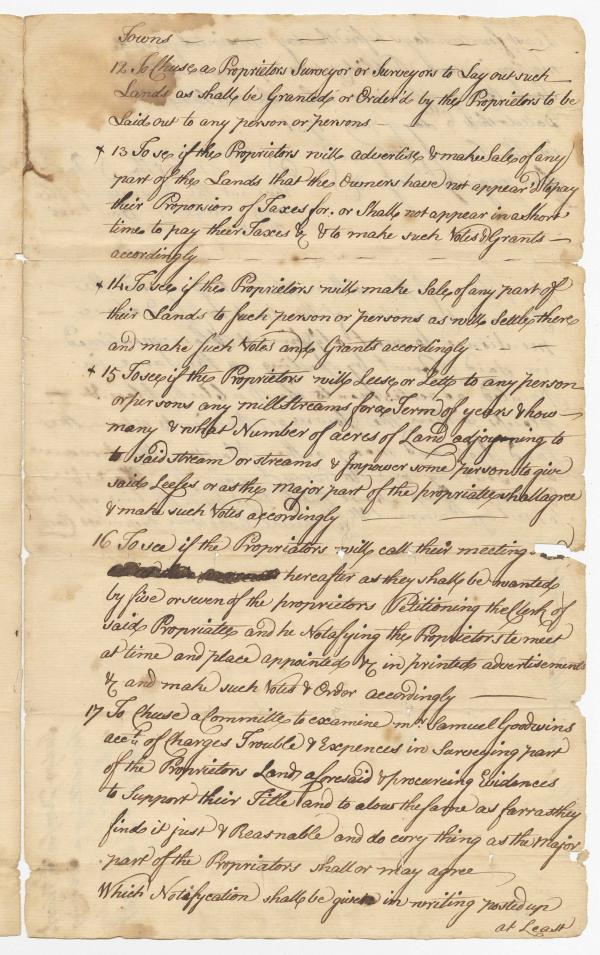 Towns
12 To Chuse a Proprietors Surveyor or Surveyors to Lay out such
Lands as shall be Granted or Order'd by the Proprietors to be
Laid out to any person or persons
+ 13 To se if the Proprietors will advertise & make Sale of any
part of the Lands that the Owners have not appear'd to pay
their Proporsion of Taxes for. or Shall not appear in a Short
time to pay their Taxes & & to make such Votes & Grants
accordingly
+ 14 To see if the Proprietors will make Sale of any part of
their Lands to such person or persons as will Settle there
and make such Votes and Grants accordingly
+ 15 To see if the Proprietors will Leese or Lett to any person
or persons any mill streams for a Term of years & how
many & what Number of acres of Land adjoyning to
to said stream or streams & Impower some person to give
said Leeses or as the Major part of the propriatee shall agree
& make such Votes accordingly
16 To see if the Propriators will call their meeting
hereafter as they shall be wanted
by five or seven of the proprietors Petitioning the Clerk of
said Propriatee and he Notafying the Proprietors to meet
at time and place appointed &c in printed advertisements
&c and make such Votes & Order accordingly
17 To Chuse a Committe to examine mr. Samuel Goodwins
acctt. of Charges Trouble & Expences in Surveying part
of the Proprietors Land aforesaid & procureing Evidences
to Support their Title and to alous the same as farr as they
finds it just & Reasnable and do every thing as the Major
part of the Propriators shall or may agree
Which Notifycation shall be given in writing posted up
at Least